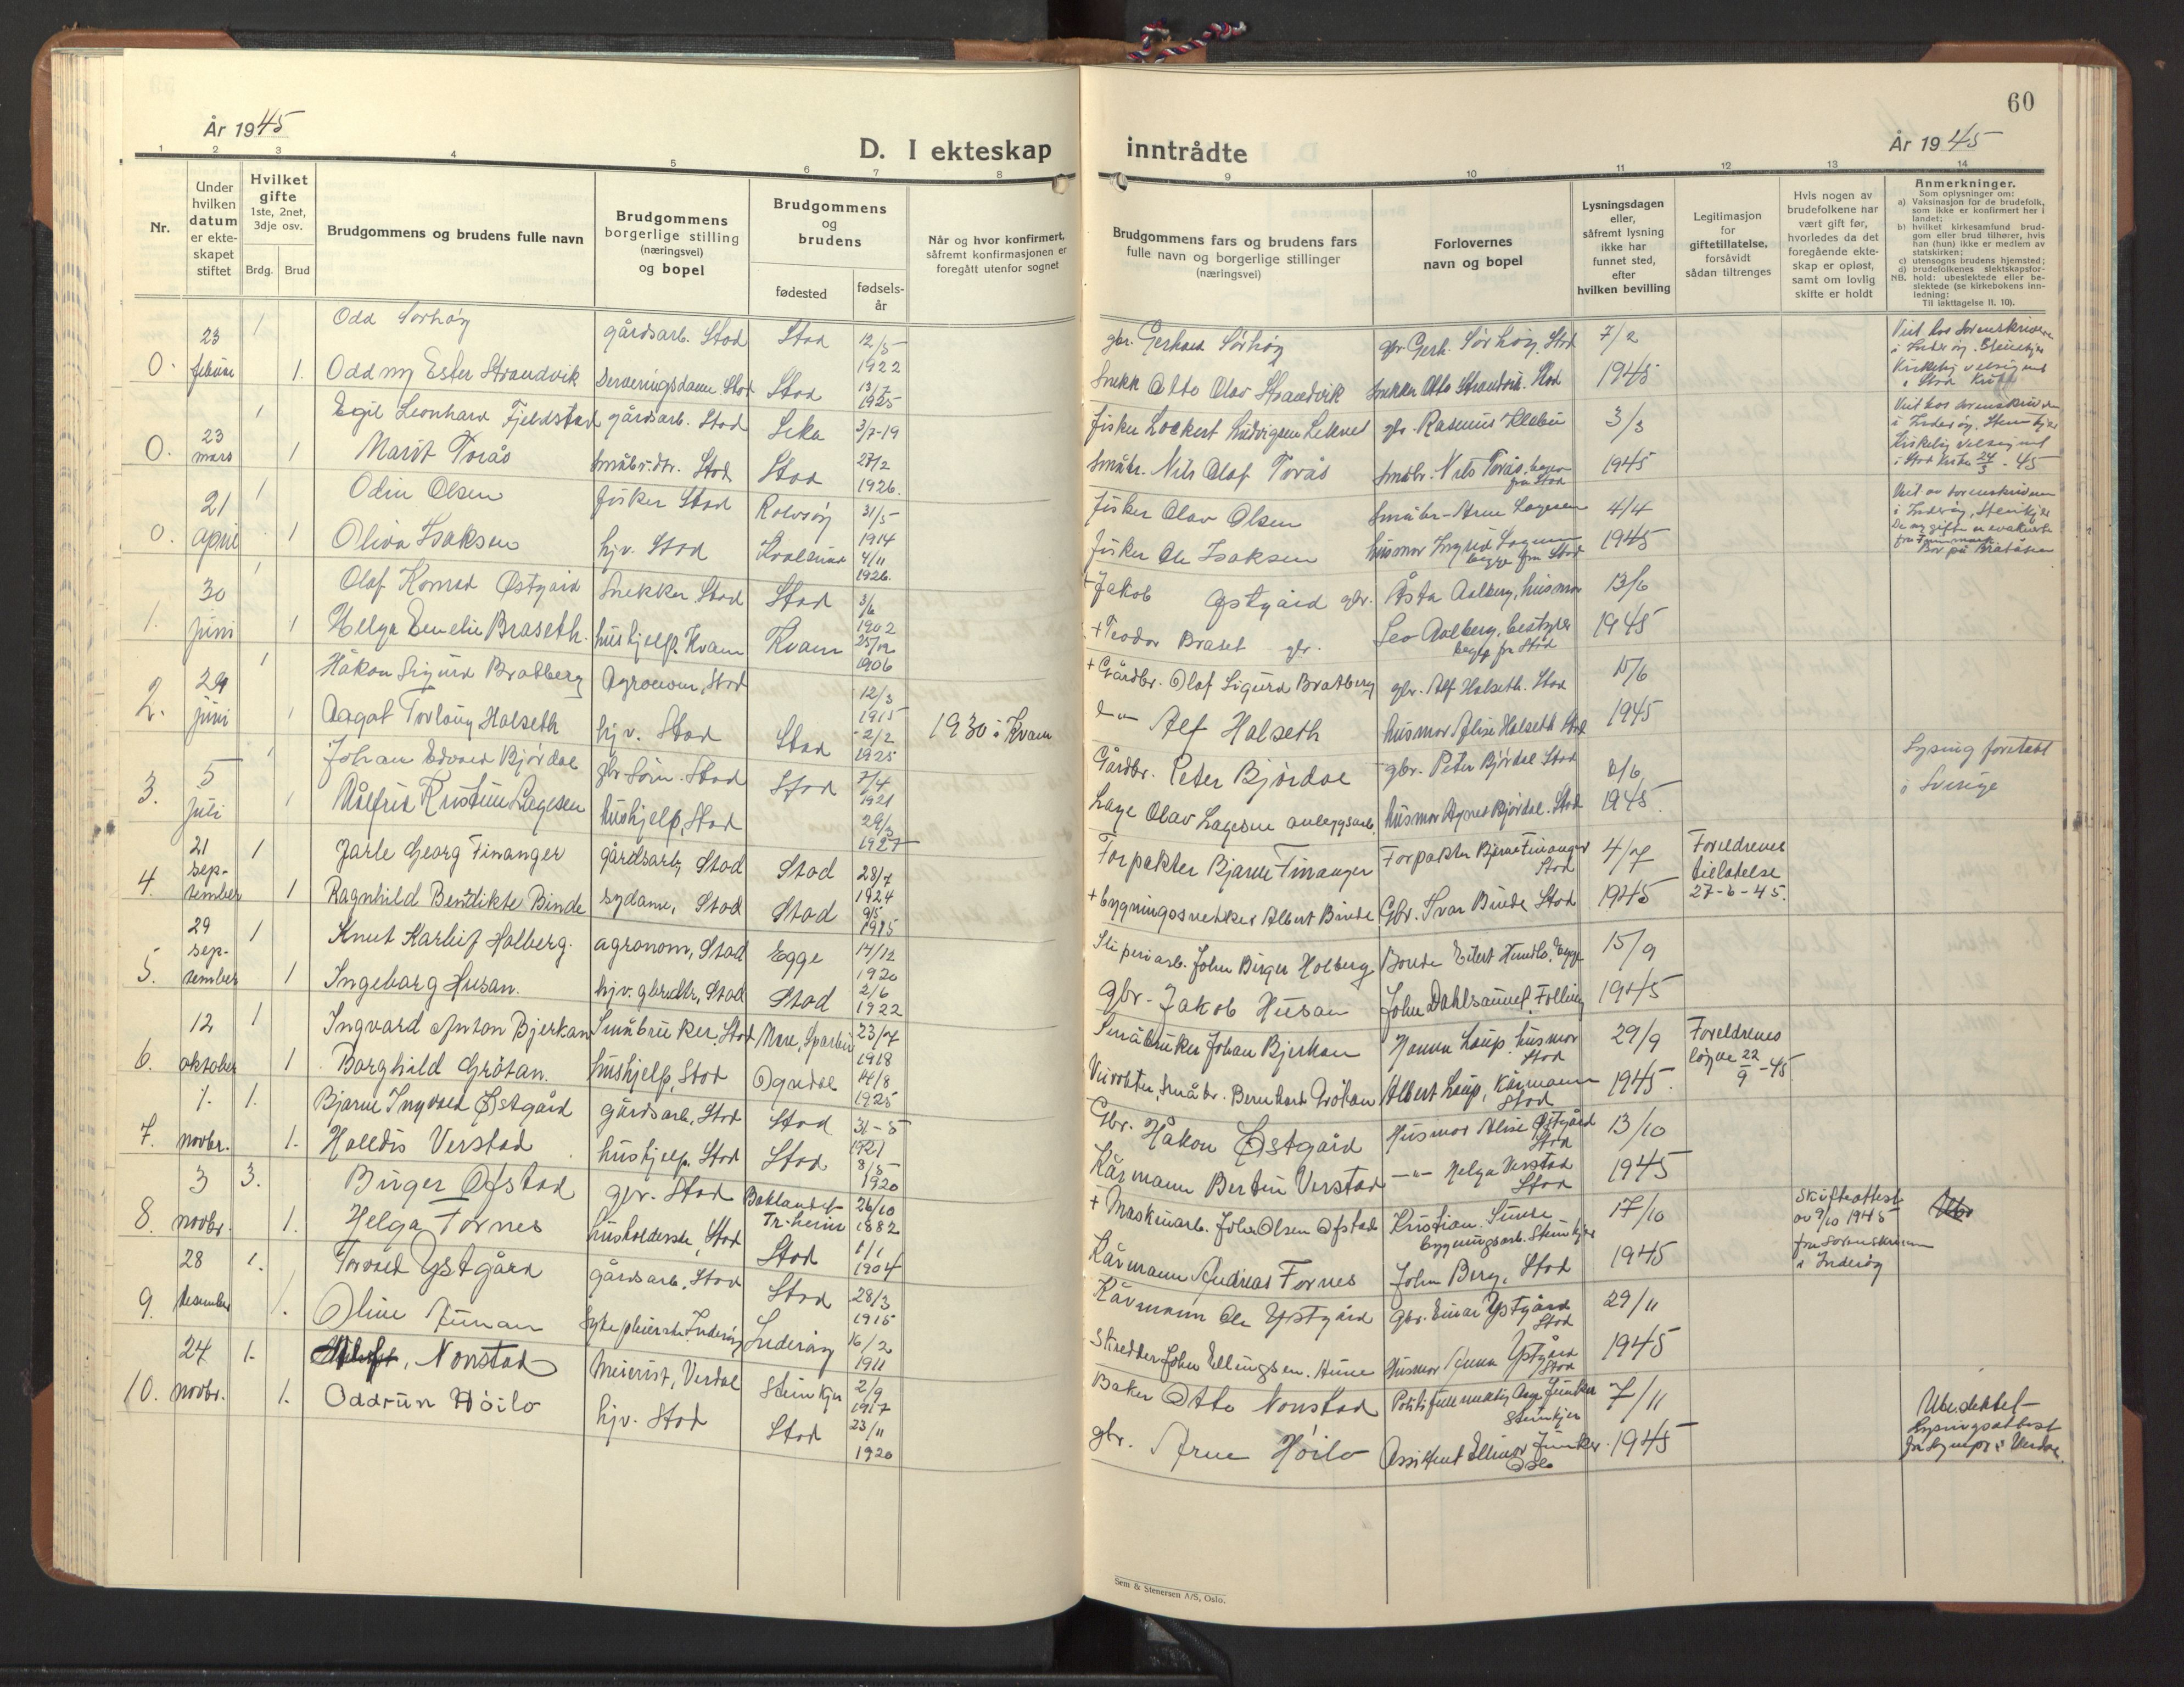 År 1945
D. I ekteskap
1 2 3 4 5 6 7 8
Nr.
Under hvilken datum er ekteskapet stiftet
Hvilket gifte 1ste, 2net, 3dje osv.
Brdg. Brud
Brudgommens og brudens fulle navn
Brudgommens borgerlige stilling (næringsvei) og bopel
Brudgommens og brudens
fødested
fødselsår
Når og hvor konfirmert, såfremt konfirmasjonen er foregått utenfor sognet
0. 23 februar 1 Odd Sørhøy gårdsarb. Stod Stod 12/5 1922
1. Oddny Ester Strandvik Serveringsdame Stod Stod 13/7 1925
0. 23 mars 1 Egil Leonhard Fjeldstad gårdsarb. Stod Leka 3/7-19
1 Marit Torås Småbr.dtr. Stod Stod 27/2 1926.
0. 21 april 1 Odin Olsen fisker Stod Rolvsøy 31/5 1914
1 Oliva Isaksen hjv. Stod Kvalsund 4/11 1926.
1. 30 juni 1 Olaf Konrad Østgård Snekker Stod Stod 3/6 1902
1 Helga Emelie Braseth. hushjelp. Kvam Kvam 25/12 1906
2. 29 juni 1 Håkon Sigurd Bratberg Agronom, Stod 12/3 1915 1930 i Kvam
1 Aagot Torlaug Halseth hjv. Stod Stod 2/2 1925
3. 5 juli 1 Johan Edvard Bjørdal gbr.sønn. Stod Stod 7/4 1921
1 Ålfrid Kristine Lagesen hushjelp, Stod 29/3 1927
4. 21 september 1 Jarle Georg Finanger gårdsarb, Stod Stod 28/7 1924
1 Ragnhild Bendikte Binde sydame, Stod Stod 9/5 1925
5. 29 september 1 Knut Karleif Holberg. agronom, Stod Egge 14/12 1920
1 Ingeborg Husan. hjv. gbrdtr, Stod Stod 2/6 1922
6. 12 oktober 1 Ingvard Anton Bjerkan Småbruker, Stod Mære, Sparbu 23/7 1918
1 Borghild Grôtan. hushjelp, Stod Ogndal 14/8 1925
7. 1. novbr. 1. Bjarne Ingvald Østgård gårdsarb, Stod Stod 31-5 1921
1. Halldis Verstad hushjelp, Stod Stod 8/5 1920
8. 3 novbr. 3. Birger Øfstad gbr. Stod Baklandet Tr.heim 26/10 1882
1. Helga Fornes husholderske, Stod Stod 1/1 1904
9. 28 desember 1. Torvald Ystgård gårdsarb, Stod Stod 28/3 1915
1. Oline Aunan Sykepleierske, Inderøy Inderøy 16/2 1911
10. 24 novbr. 1. Nonstad Meierist, Verdal Steinkjer 2/9 1917
1. Oddrun Høilo hjv. Stod Stod 23/11 1920
60
inntrådte
År 1945
9 10 11 12 13 14
Brudgommens fars og brudens fars fulle navn og borgerlige stillinger (næringsvei)
Forlovernes navn og bopel
Lysningsdagen eller, såfremt lysning ikke har funnet sted, efter hvilken bevilling
Legitimasjon for giftetillatelse, forsåvidt sådan tiltrenges
Hvis nogen av brudefolkene har vært gift før, hvorledes da det foregående ekteskap er opløst, samt om lovlig skifte er holdt
Anmerkninger.
Som oplysninger om:
a) Vaksinasjon for de brudefolk, som ikke er konfirmert her i landet;
b) hvilket kirkesamfund brudgom eller brud tilhører, hvis han (hun) ikke er medlem av statskirken;
c) utensogns brudens hjemsted;
d) brudefolkenes slektskapsforhold: ubeslektede eller beslektede (se kirkebokens innledning:
NB. Til iakttagelse II. 10).
gbr. Gerhard Sørhøy gbr. Gerh. Sørhøy. Stod 7/2 Viet hos sorenskriveren i Inderøy. Steinkjer
Snekk Otto Olav Strandvik Snekker Otto Strandvik. Stod 1945 Kirkelig velsignet i Stod kirke
fisker Lockert Ludvigsen Leknes gbr. Rasmus Klebu 3/3 Viet hos sorenskriveren i Inderøy, Steinkjer
Småbr. Nils Olaf Torås Småbr. Nils Torås, begge fra Stod 1945 Kirkelig velsignet i Stod kirke 24/3 - 45
fisker Olav Olsen Småbr. Arne Lagesen 4/4 Viet av sorenskriveren i Inderøy, Steinkjer
fisker Ole Isaksen husmor Ingrid Lagesen begge fra Stod 1945 De nygifte er evakuert fra Finnmark. Bor på Bratåsen
+ Jakob Østgård gbr. Åsta Aalberg, husmor 13/6
+ Teodor Braset gbr. Leo Aalberg, bestyrer begge fra Stod 1945
+ Gårdbr. Olaf Sigurd Bratberg gbr. Alf Halseth. Stod 15/6
—"— Alf Halseth husmor Alise Halseth Stod 1945
Gårdbr. Peter Bjørdal gbr. Peter Bjørdal Stod 8/6 Lysing foretatt i Sverige
Lage Olav Lagesen anleggsarb. husmor Agnes Bjørdal. Stod 1945.
Forpakter Bjarne Finanger Forpakter Bjarne Finanger Stod 4/7 Foreldrenes tillatelse 27-6-45.
+ bygningssnekker Albert Binde Gbr. Ivar Binde Stod 1945
Sliperiarb. John Birger Holberg Bonde Eilert Hundlo, Egge 15/9
gbr. Jakob Husan John Dahlsaunet, Følling 1945
Småbruker Johan Bjerkan Hanna Laup, husmor Stod 29/9 Foreldrenes løyve 22/9 -45
Veivokter, småbr. Bernhard Grôtan Albert Laup, Kårmann Stod 1945.
Gbr. Håkon Østgård Husmor Alise Østgård Stod 13/10
Kårmann Bertin Verstad —"— Helga Verstad Stod 1945
+ Maskinarb. John Olsen Øfstad Kristian Sunde bygningsarb. Steinkjer 17/10 Skifteattest av 9/10 1945 fra Sorenskriveren i Inderøy
Kårmann Andreas Fornes John Berg, Stod 1945
Kårmann Ole Ystgård Gbr. Einar Ystgård Stod 29/11
Skredder John Ellingsen Aune Husmor Anna Ystgård Stod 1945
Baker Otto Nonstad Politifullmektig Aage Junker Steinkjer 7/11 Ubeslektet
gbr. Arne Høilo Assistent Ellinor Junker Oslo 1945 Lysningsattest fra sognepr. i Verdal
Sem & Stenersen A/S, Oslo.